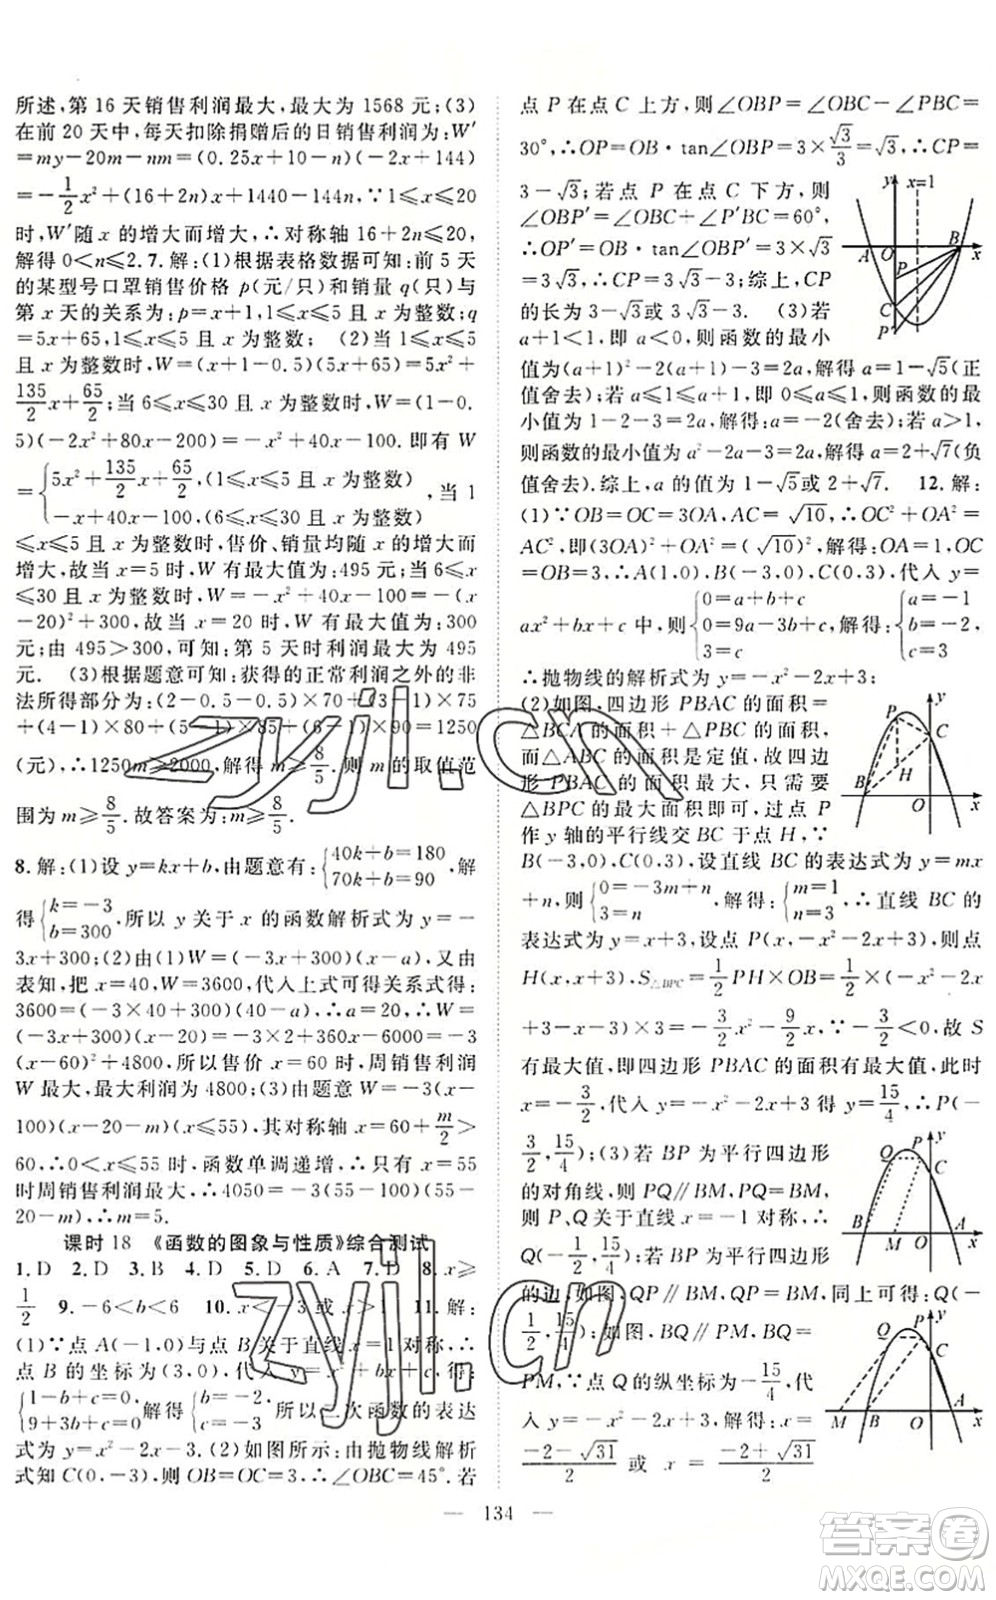 所述,第 16 天销售利润最大,最大为 1568 元;(3)
在前 20 天中,每天扣除捐赠后的日销售利润为:W′
=my-20m-nm=(0.25x+10-n)(-2x+144)
=-1/2x²+(16+2n)x+1440-144n,∵1≤x≤20
时,W′随 x 的增大而增大,∴对称轴 16+2n≤20,
解得 0<n≤2. 7. 解:(1)根据表格数据可知:前 5 天
的某型号口罩销售价格 p(元/只)和销量 q(只)与
第 x 天的关系为:p=x+1,1≤x≤5 且 x 为整数;q
=5x+65,1≤x≤5 且 x 为整数; (2)当 1≤x≤5 且
x 为整数时,W=(x+1-0.5)(5x+65)=5x²+
135/2x+65/2;当 6≤x≤30 且 x 为整数时,W=(1-0.
5)(-2x²+80x-200)=-x²+40x-100. 即有 W
={5x²+135/2x+65/2,(1≤x≤5 且 x 为整数)
-x+40x-100,(6≤x≤30 且 x 为整数) ,当 1
≤x≤5 且 x 为整数时,售价、销量均随 x 的增大而
增大,故当 x=5 时,W 有最大值为:495 元;当 6≤x
≤30 且 x 为整数时,W=-x²+40x-100=-(x
-20)²+300,故当 x=20 时,W 有最大值为:300
元;由 495>300,可知:第 5 天时利润最大为 495
元. (3)根据题意可知:获得的正常利润之外的非
法所得部分为:(2-0.5-0.5)×70+(3-1)×75
+(4-1)×80+(5-1)×85+(6-1)×90=1250
(元),∴1250m≥2000,解得 m≥8/5. 则 m 的取值范
围为 m≥8/5. 故答案为:m≥8/5.
8. 解:(1)设 y=kx+b,由题意有:{40k+b=180
70k+b=90 ,解
得{k=-3
b=300,所以 y 关于 x 的函数解析式为 y=-
3x+300;(2)由(1)W=(-3x+300)(x-a),又由
表知,把 x=40,W=3600,代入上式可得关系式:
3600=(-3×40+300)(40-a),∴a=20,∴W=
(-3x+300)(x-20)=-3×2+360x-6000=-3
(x-60)²+4800,所以售价 x=60 时,周销售利润
W 最大,最大利润为 4800;(3)由题意 W=-3(x-
100)(x-20-m)(x≤55),其对称轴 x=60+m/2>
60,∴0<x≤55 时,函数单调递增,∴只有 x=55
时周销售利润最大,∴4050=-3(55-100)(55-
20-m),∴m=5.
课时 18 《函数的图象与性质》综合测试
1. D 2. D 3. B 4. D 5. D 6. A 7. D 8. x≥
1/2 9. -6<b<6 10. x<-3或 x>1 11. 解:
(1)∵点 A(-1.0)与点 B 关于直线 x=1 对称,∴
点 B 的坐标为(3,0),代入 y=x²+bx+c 得:
{1-b+c=0
9+3b+c=0 ,解得{b=-2
c=-3 所以二次函数的表达
式为 y=x²-2x-3;(2)如图所示:由抛物线解析
式知 C(0,-3),则 OB=OC=3,∴∠OBC=45°. 若
点 P 在点 C 上方,则∠OBP=∠OBC-∠PBC=
30°,∴OP=OB·tan∠OBP=3×√3/3=√3,∴CP=
3-√3;若点 P 在点 C 下方,则
∠OBP′=∠OBC+∠P′BC=60°,
∴OP′=OB·tan∠OBP′=3×√3
=3√3,∴CP=3√3-3;综上,CP
的长为 3-√3或 3√3-3. (3)若
a+1<1,即 a<0,则函数的最小
值为(a+1)²-2(a+1)-3=2a,解得 a=1-√5(正
值舍去);若 a≤1≤a+1,即 0≤a≤1,则函数的最
小值为 1-2-3=2a,解得:a=-2(舍去);若 a>1,
则函数的最小值为 a²-2a-3=2a,解得 a=2+√7(负
值舍去).综上,a 的值为 1-√5或 2+√7. 12. 解:
(1)∵OB=OC=3OA,AC=√10,∴OC²+OA²=
AC²,即(3OA)²+OA²=(√10)²,解得:OA=1,OC
=OB=3,∴A(1.0),B(-3,0),C(0,3),代入 y=
ax²+bx+c 中,则{0=a+b+c
0=9a-3b+c
3=c ,解得:{a=-1
b=-2,
c=3
∴抛物线的解析式为 y=-x²-2x+3;
(2)如图,四边形 PBAC 的面积=
△BCA 的面积+△PBC 的面积,
而△ABC 的面积是定值,故四边
形 PBAC 的面积最大,只需要
△BPC 的最大面积即可,过点 P
作 y 轴的平行线交 BC 于点 H,∵
B(-3,0),C(0,3),设直线 BC 的表达式为 y=mx
+n,则{0=-3m+n
3=n ,解得:{m=1
n=3 ,∴直线 BC 的
表达式为 y=x+3,设点 P(x,-x²-2x+3),则点
H(x,x+3),S△BPC=1/2PH×OB=3/2(-x²-2x
+3-x-3)=-3/2x²-9/2x,∵-3/2<0,故 S
有最大值,即四边形 PBAC 的面积有最大值,此时
x=-3/2,代入 y=-x²-2x+3 得 y=15/4,∴P(-
3/2,15/4);(3)若 BP 为平行四边形
的对角线,则 PQ∥BM,PQ=BM,
P、Q 关于直线 x=-1 对称,∴
Q(-1/2,15/4);若 BP 为平行四边形
的边,如图,QP∥BM,QP=BM,同上可得:Q(-
1/2,15/4);如图,BQ∥PM,BQ=
PM,∵点 Q的纵坐标为-15/4,代
入 y=-x²-2x+3 解得:x=
-2-√31/2 或 x=-2+√31/2
y x=1 A O B x P C P
y P C H B O A x
Q P y C B M O A x
y Q P C M B O A x
zyjl.cn
zyjl.cn
— 134 —
答案圈
MXQE.COM